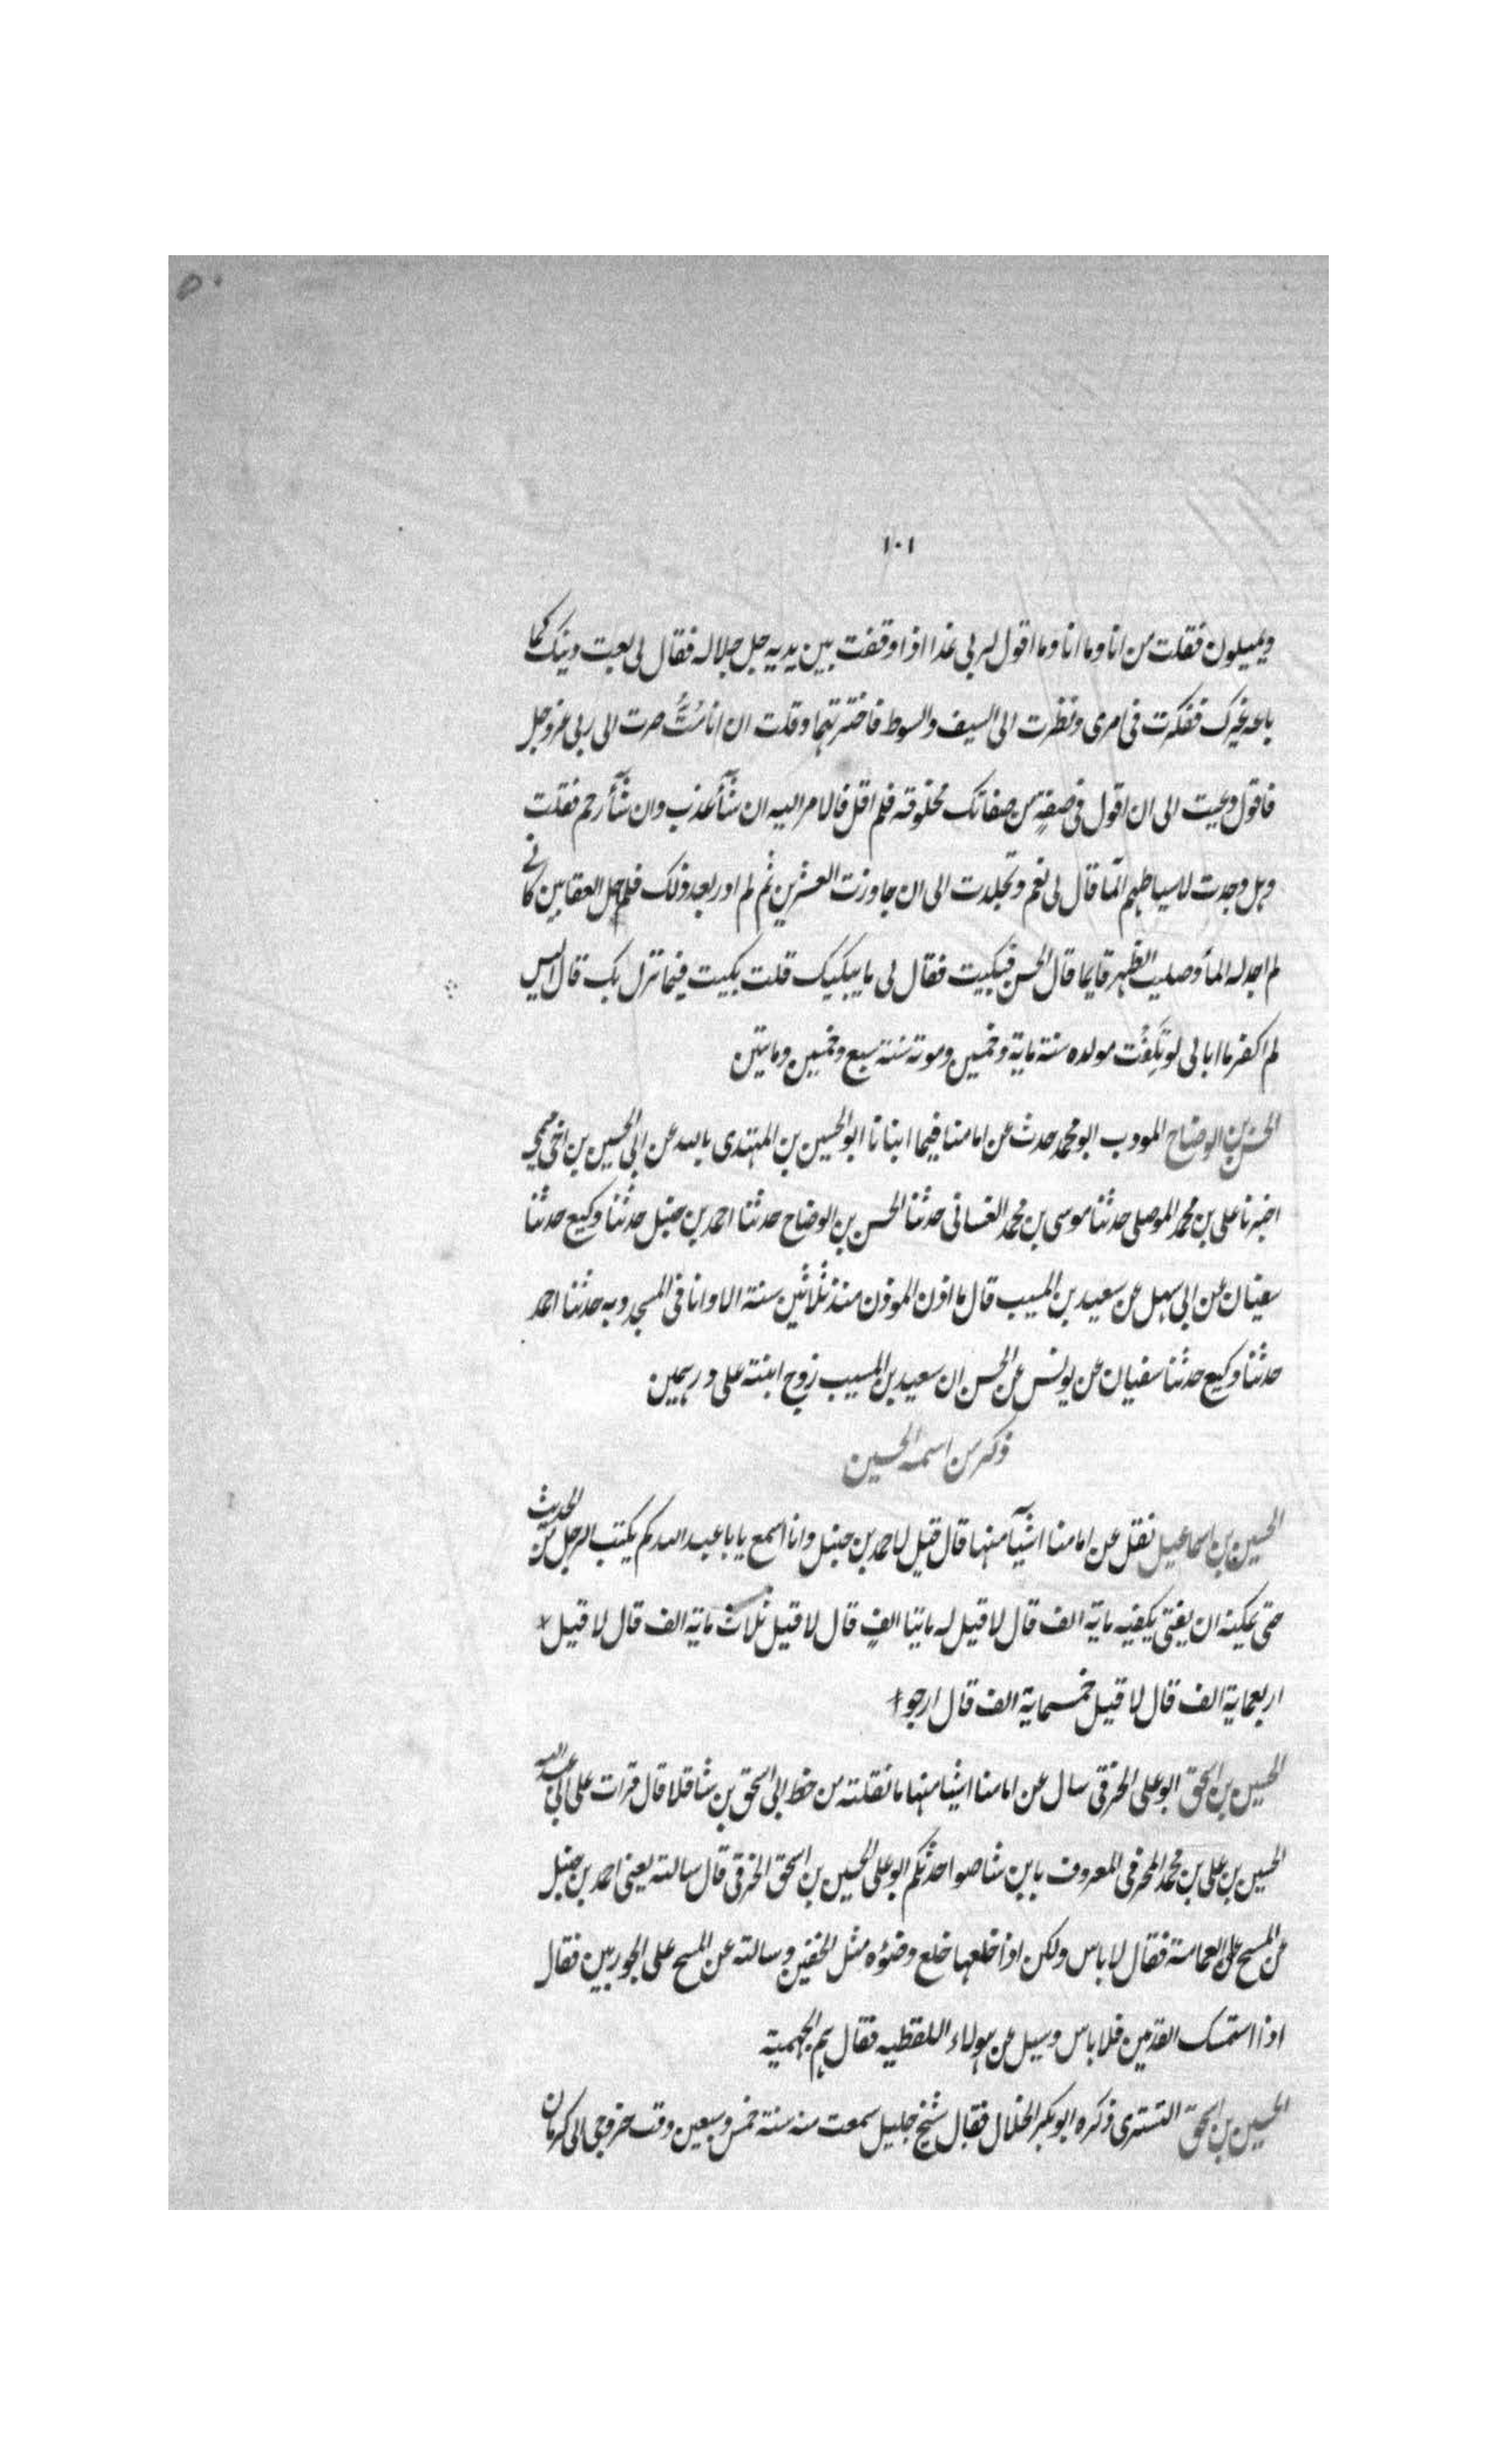 ٥٠
١٠١
ويميلون فقلت من انا وما انا وما اقول لربي غدا اذا وقفت بين يديه جل جلاله فقال لي بعت دينك كما
باعه غيرك ففكرت في امرى ونظرت الى السيف والسوط فاخترتهما وقلت ان انا مُتُّ صرت الى ربي عزوجل
فاقول دعيت الى ان اقول في صفةٍ من صفاتك مخلوقه فلم اقل فالامر اليه ان شآء عذب وان شآء رحم فقلت
وهل وجدت لاسياطهم المًا قال لي نعم وتجلدت الى ان جاوزت العشرين ثم لم ادر بعد ذلك فلم حل العقابين كانے
لم اجد له المأ وصليت الظهر قايما قال الحسن فبكيت فقال لى ما يبكيك قلت بكيت فيما نزل بك قال اليس
لم اكفر ما ابالى لو تَلِفْتُ مولده سنة ماية وخمسين وموته سنة سبع وخمسين ومايتين
الحسن بن الوضاح المودب ابو محمد حدث عن امامنا فيما انبانا ابو الحسين بن المهتدى بالله عن ابى الحسين بن اخى ميمى
اخبرنا على بن محمد الموصلى حدثنا موسى بن محمد الغسانى حدثنا الحسن بن الوضاح حدثنا احمد بن حنبل حدثنا وكيع حدثنا
سفيان عن ابى سهل عن سعيد بن المسيب قال ما اذن الموذن منذ ثلاثين سنة الا وانا فى المسجد وبه حدثنا احمد
حدثنا وكيع حدثنا سفيان عن يونس عن الحسن ان سعيد بن المسيب زوج ابنته على درهمين
ذكر من اسمه الحسين
الحسين بن اسماعيل نقل عن امامنا اشيآء منها قال قيل لاحمد بن حنبل وانا اسمع يابا عبد الله كم يكتب الرجل من الحديث
حتى يمكنه ان يفتى يكفيه ماية الف قال لا قيل له مايتا الفٍ قال لا قيل ثلاث ماية الف قال لا قيل
اربعماية الف قال لا قيل خمسماية الف قال ارجو
الحسين بن اسحق ابو على الخرقى سال عن امامنا اشيا منها ما نقلته من خط ابى اسحق بن شاقلا قال قرات على ابى عبد الله
الحسين بن على بن محمد المخرمى المعروف بابن شاصوا حدثكم ابو على الحسين بن اسحق الخرقى قال سالته يعنى احمد بن حنبل
عن المسح على العمامة فقال لا باس ولكن اذا خلعها خلع وضوءه مثل الخفين وسالته عن المسح على الجوربين فقال
اذا استمسك القدمين فلا باس وسيل عن هولاء اللفظيه فقال هم الجهمية
الحسين بن اسحق التسترى ذكره ابو بكر الخلال فقال شيخ جليل سمعت منه سنة خمس وسبعين وقت خروجى الى كرمان